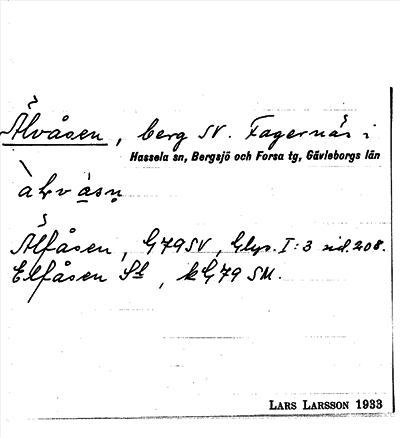 Älvåsen, berg SV. Fagernäs i
Hassela sn, Bergsjö och Forsa tg, Gävleborgs län
Älfåsen, G79SV, Glgs. I:3 sid. 208.
Elfåsen St, k G79 SM.
LARS LARSSON 1933